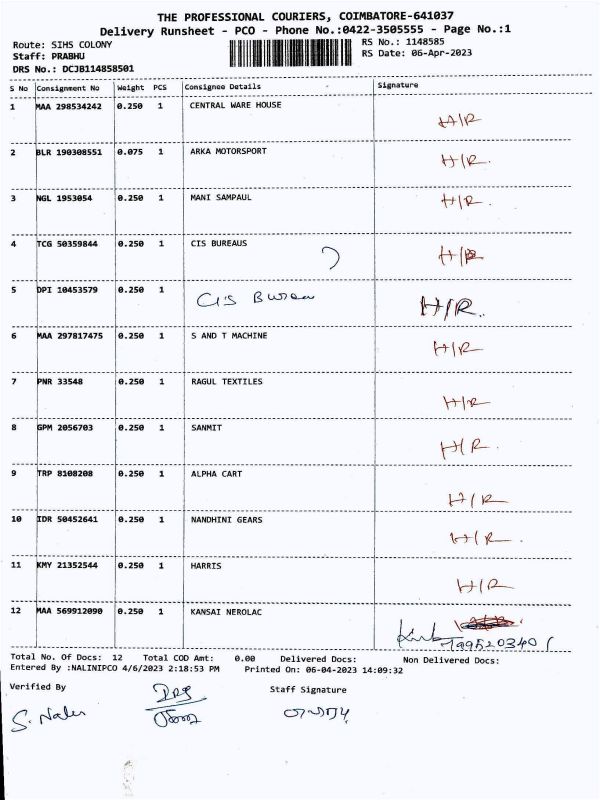 THE PROFESSIONAL COURIERS, COIMBATORE-641037
Delivery Runsheet - PCO - Phone No.:0422-3505555 - Page No.:1
Route: SIHS COLONY RS No.: 1148585
Staff: PRABHU RS Date: 06-Apr-2023
DRS No.: DCJB114858501
S No Consignment No Weight PCS Consignee Details Signature
1 MAA 298534242 0.250 1 CENTRAL WARE HOUSE H/R
2 BLR 190308551 0.075 1 ARKA MOTORSPORT H/R.
3 NGL 1953054 0.250 1 MANI SAMPAUL H/R.
4 TCG 50359844 0.250 1 CIS BUREAUS H/R
5 DPI 10453579 0.250 1 CIS Bureau H/R.
6 MAA 297817475 0.250 1 S AND T MACHINE H/R
7 PNR 33548 0.250 1 RAGUL TEXTILES H/R
8 GPM 2056703 0.250 1 SANMIT H/R.
9 TRP 8108208 0.250 1 ALPHA CART H/R
10 IDR 50452641 0.250 1 NANDHINI GEARS H/R.
11 KMY 21352544 0.250 1 HARRIS H/R
12 MAA 569912090 0.250 1 KANSAI NEROLAC
Total No. Of Docs: 12 Total COD Amt: 0.00 Delivered Docs: Non Delivered Docs:
Entered By :NALINIPCO 4/6/2023 2:18:53 PM Printed On: 06-04-2023 14:09:32
Verified By Staff Signature